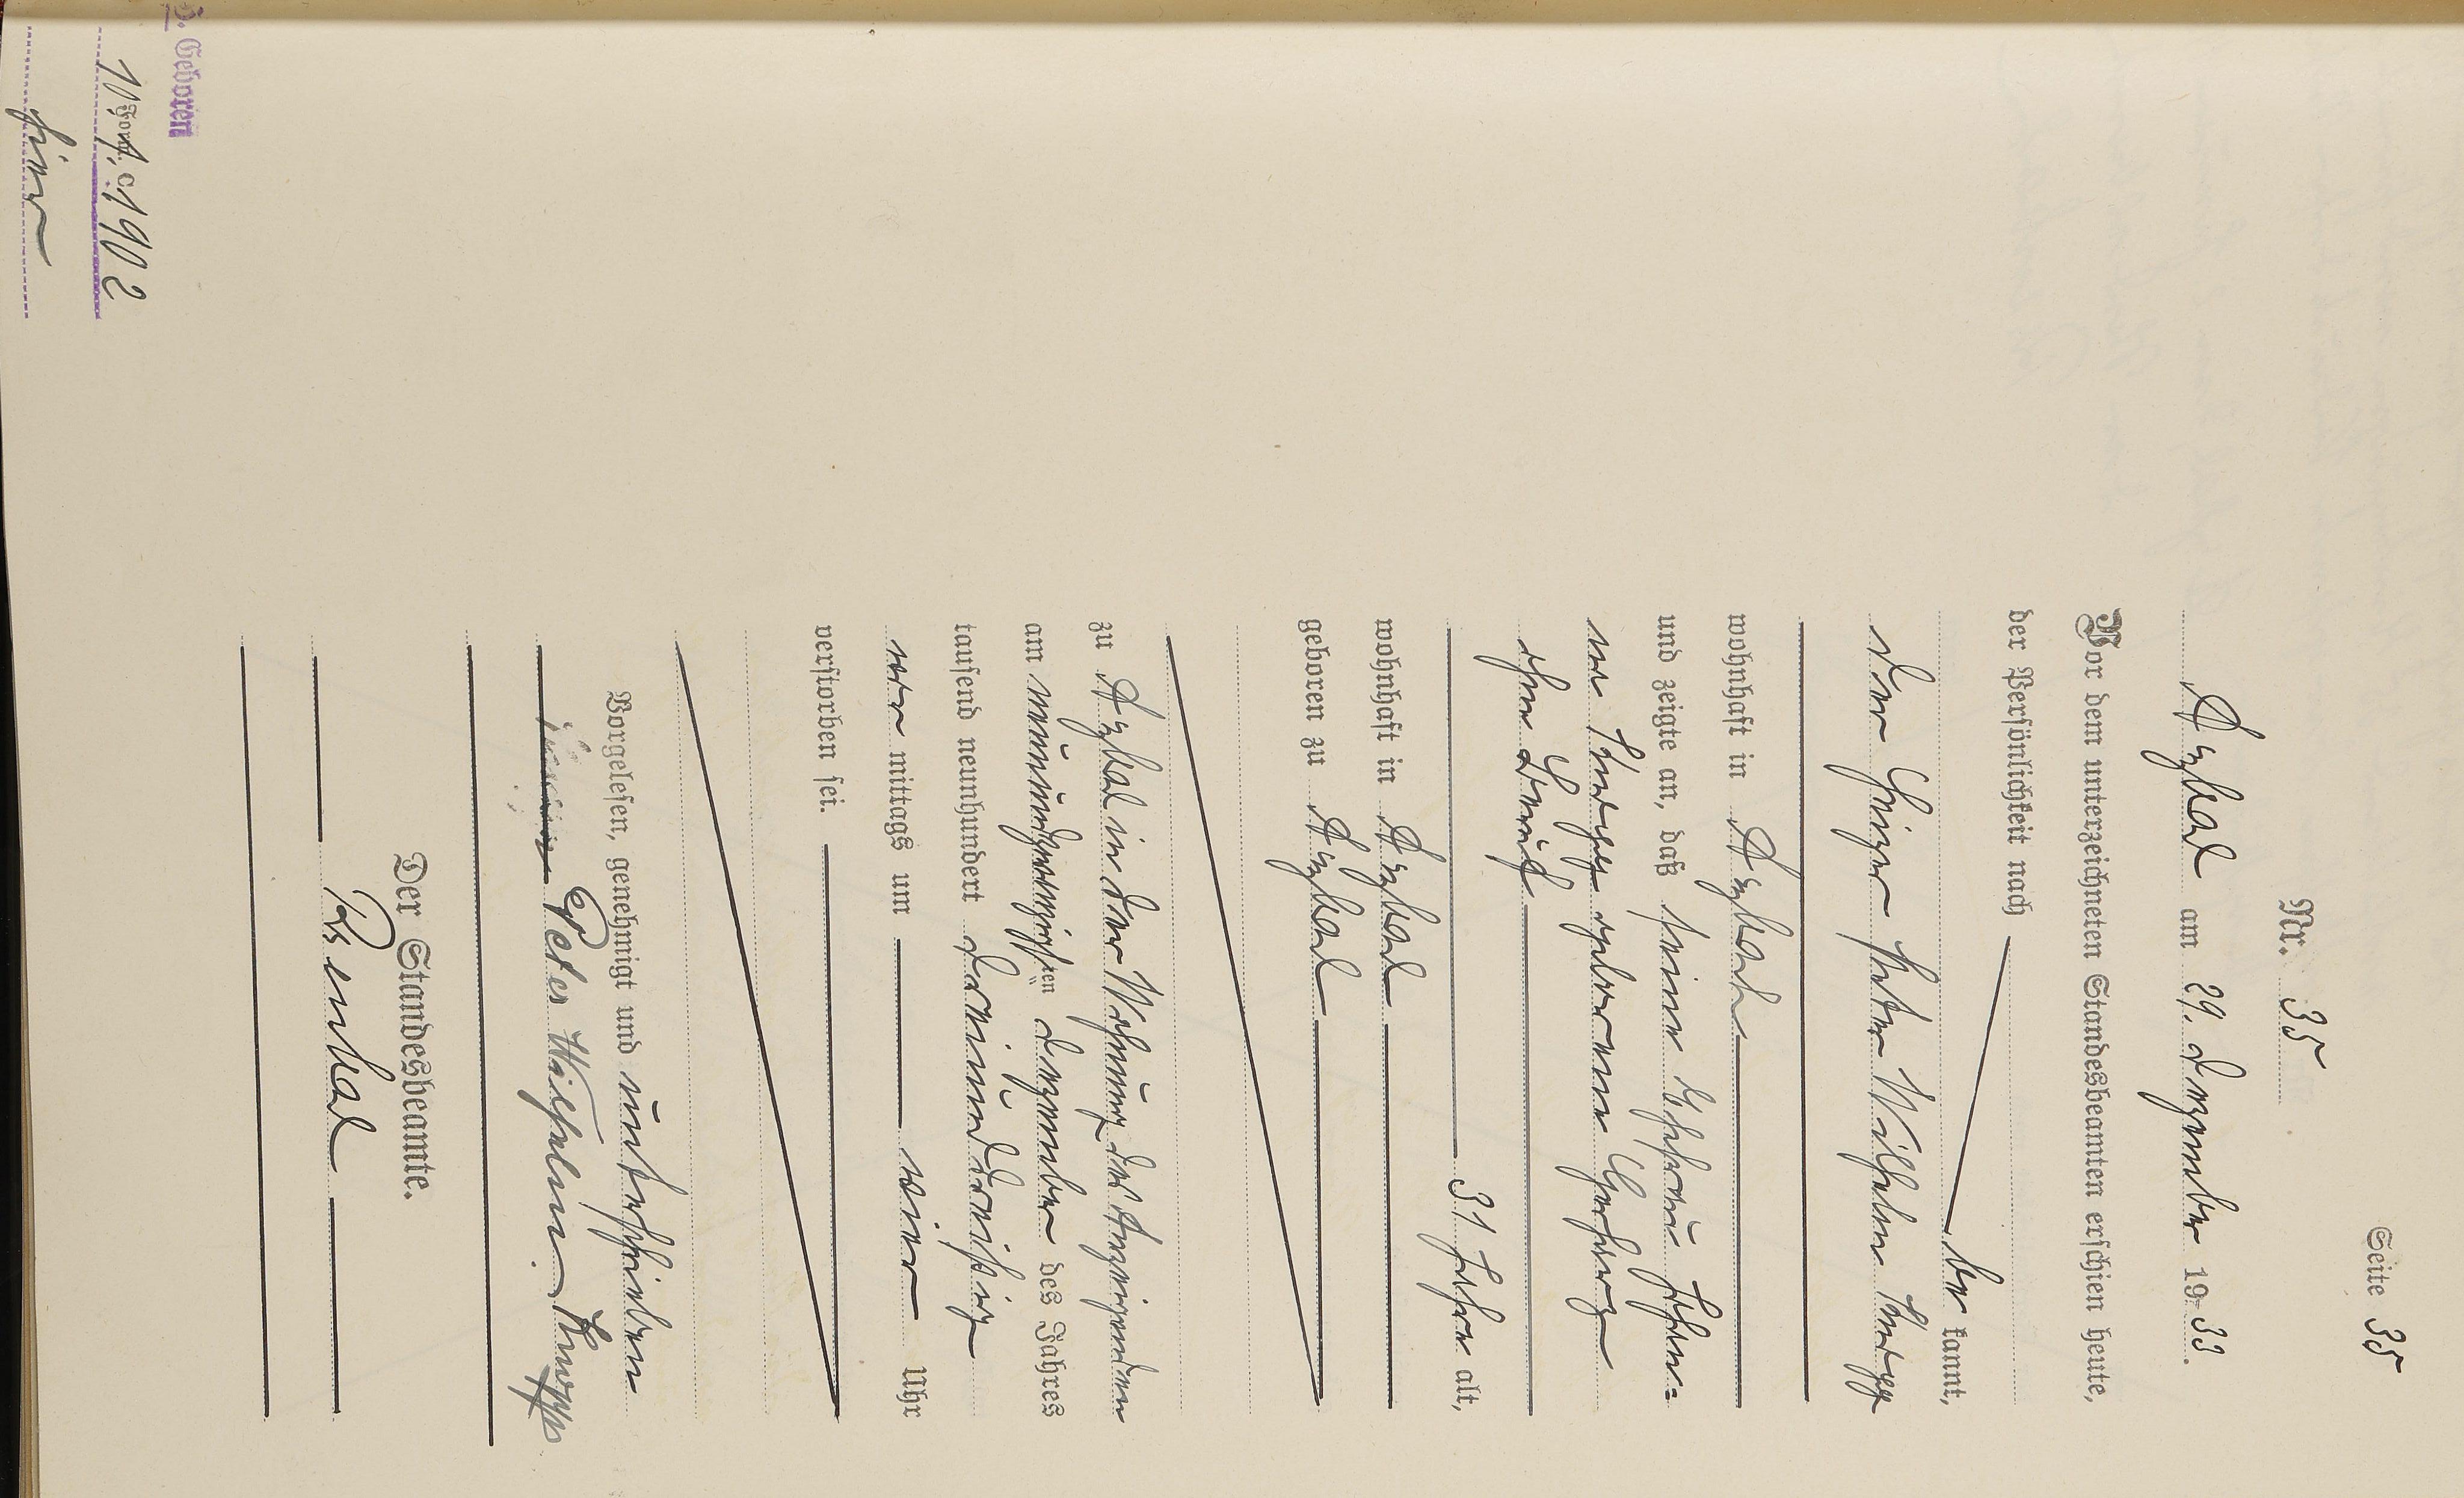 Seite 35
Nr. 35
Asbach am 29. Dezember 1933.
Vor dem unterzeichneten Standesbeamten erschien heute,
der Persönlichkeit nach
be kannt,
der Peter Wilhelm
wohnhaft in Asbach
und zeigte an, daß seine Ehefrau Johan=
na geborene
ohne Beruf
31 Jahre alt,
wohnhaft in Asbach
geboren zu Asbach
zu Asbach in der Wohnung des Anzeigenden
am neunundzwanzigsten Dezember des Jahres
tausend neunhundert dreiunddreißig
vor mittags um vier Uhr
verstorben sei.
Vorgelesen, genehmigt und unterschrieben
Peter Wilhelm
Der Standesbeamte.
Geboren
1902
hier